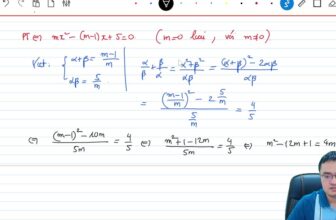 Pt ⇔ mx² - (m-1)x + 5 = 0 (m=0 loại, với m≠0)
Viet: { α+β = (m-1)/m
αβ = 5/m
α/β + β/α = (α²+β²)/αβ = ((α+β)² - 2αβ)/αβ
= (((m-1)/m)² - 2 5/m)/(5/m) = 4/5
⇔ ((m-1)² - 10m)/5m = 4/5 ⇔ (m²+1-12m)/5m = 4/5 ⇔ m² - 12m + 1 = 4m